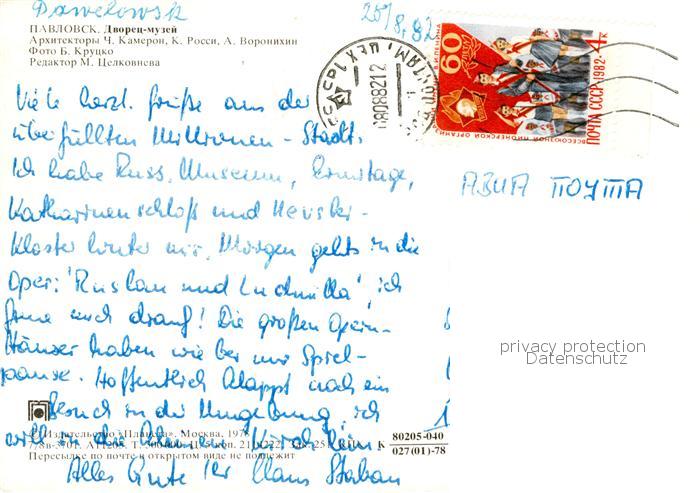 Pawelowsk
25/8.82
ПАВЛОВСК. Дворец-музей
Архитекторы Ч. Камерон, К. Росси, А. Воронихин
Фото Б. Круцко
Редактор М. Целковнева
60 ЛЕТ
В.И. ЛЕНИНА
ВСЕСОЮЗНОЙ ПИОНЕРСКОЙ ОРГАНИЗ
ПОЧТА СССР•1982•4к
Viele herzl. Grüße aus der
überfüllten Millionen-Stadt.
Ich habe Russ. Museum, Ermitage,
Katharinenschloß und
Kloster hinter mir. Morgen gehts in die
Oper: 'Ruslan und Ludmilla', ich
freue mich drauf! Die großen Opern-
Häuser haben wie bei uns Spiel-
pause. Hoffentlich klappt noch ein
Besuch in die Umgebung, ich
will in die kleinen
Alles Gute Ihr Claus
АВИА ПОЧТА
privacy protection
Datenschutz
© Издательство «Планета», Москва, 197
Пересылке по почте в открытом виде не подлежит
К 80205-040
027(01)-78